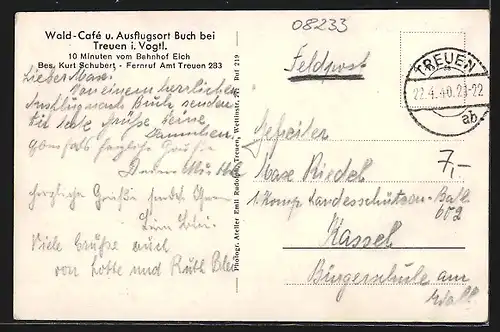 08233
Wald-Café u. Ausflugsort Buch bei
Treuen i. Vogtl.
10 Minuten vom Bahnhof Eich
Bes. Kurt Schubert - Fernruf Amt Treuen 283
Feldpost
TREUEN
22.4.40.21-22
ab
Lieber Max.
Von einem herrlichen
Ausflug nach Buch senden
Dir Grüße Deine
herzliche Grüße
herzliche Grüße
Viele Grüße auch
von Lotte und Ruth
Photogr. Atelier Emil Treuen, Wettinstr. Ruf 219
Gefreiter
Max Riedel
7,-
1. Komp. Landesschützen-Batl.
Kassel
Bürgerschule am
Wall